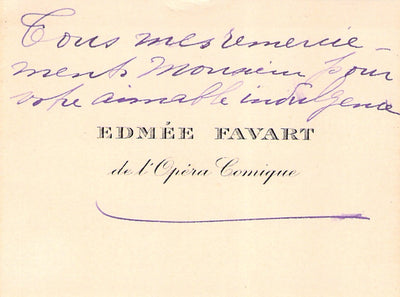 Tous mes remercie-
ments Monsieur pour
votre aimable indulgence
EDMÉE FAVART
de l'Opéra Comique